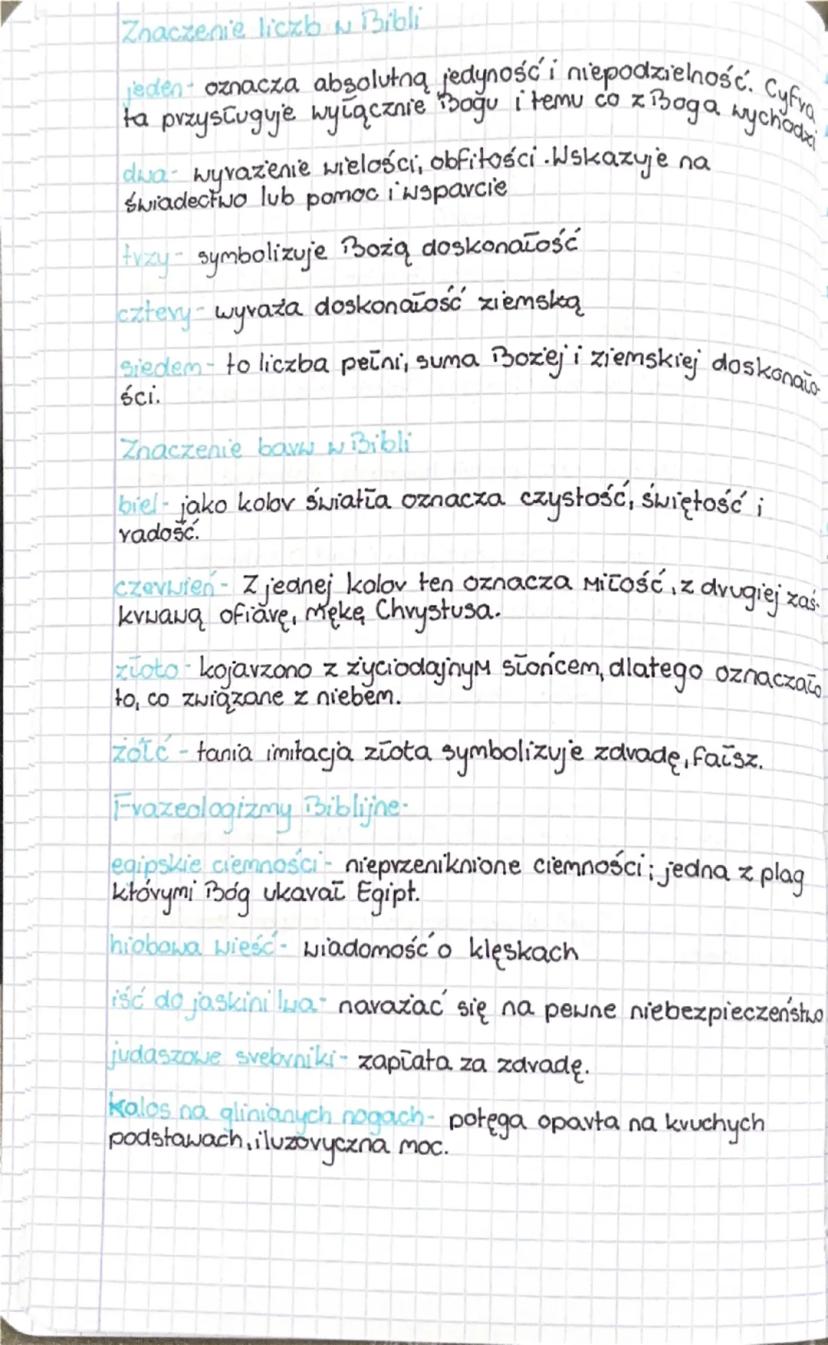 Znaczenie liczb w Bibli
jeden- oznacza absolutną jedyność i niepodzielność. Cyfra
ta przysługuje wyłącznie Bogu i temu co z Boga wychodzi
dwa- wyrażenie wielości, obfitości. Wskazuje na
świadectwo lub pomoc i wsparcie
trzy- symbolizuje Bożą doskonałość
cztery- wyraża doskonałość ziemską
siedem- to liczba pełni, suma Bożej i ziemskiej doskonało-
ści.
Znaczenie barw w Bibli
biel- jako kolor światła oznacza czystość, świętość i
radość.
czerwień- Z jednej kolor ten oznacza miłość, z drugiej zaś-
krwawą ofiarę, mękę Chrystusa.
złoto- kojarzono z życiodajnym słońcem, dlatego oznaczało
to, co związane z niebem.
żółć- tania imitacja złota symbolizuje zdradę, fałsz.
Frazeologizmy Biblijne-
egipskie ciemności- nieprzeniknione ciemności; jedna z plag
którymi Bóg ukarał Egipt.
hiobowa wieść- wiadomość o klęskach
iść do jaskini lwa- narażać się na pewne niebezpieczeństwo
judaszowe srebrniki- zapłata za zdradę.
Kolos na glinianych nogach- potęga oparta na kruchych
podstawach, iluzoryczna moc.